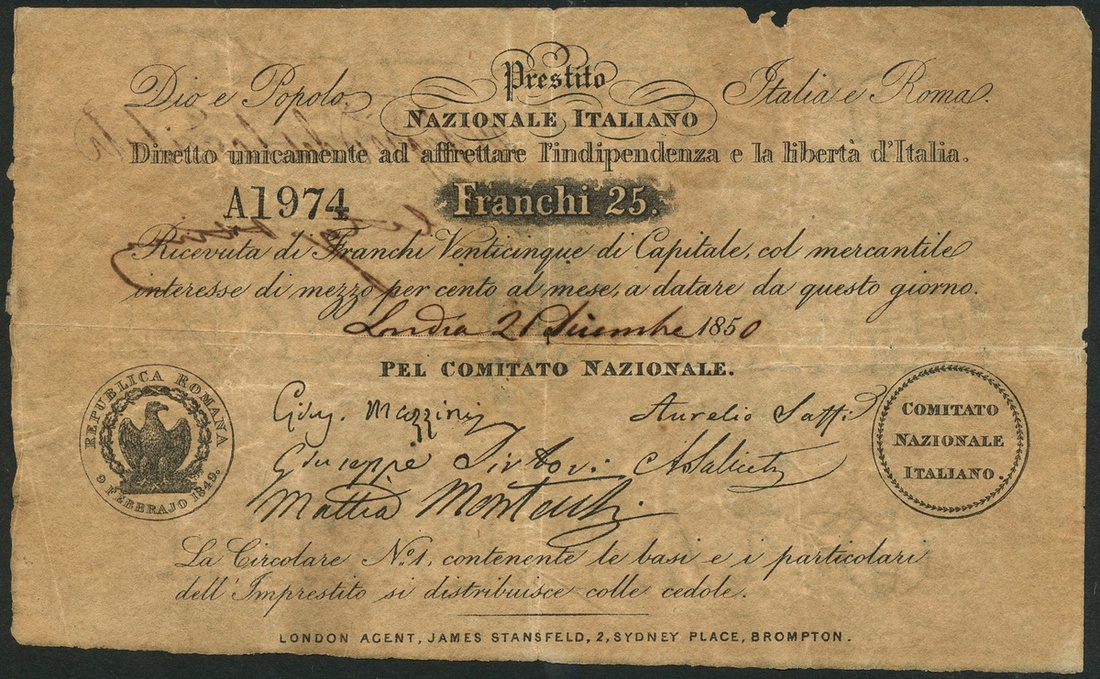 Dio e Popolo. Prestito Italia e Roma.
NAZIONALE ITALIANO
Diretto unicamente ad affrettare l'indipendenza e la libertà d'Italia.
A1974 Franchi 25.
Ricevuta di Franchi Venticinque di Capitale, col mercantile
interesse di mezzo per cento al mese, a datare da questo giorno.
Londra 21 Dicembre 1850
PEL COMITATO NAZIONALE.
REPUBLICA ROMANA
9 FEBBRAJO 1849.
Giuş. Mazzini Aurelio Saffi
Giuseppe Sirtori. A Saliceti
Mattia Montecchi
COMITATO
NAZIONALE
ITALIANO.
La Circolare No. 1, contenente le basi e i particolari
dell'Imprestito si distribuisce colle cedole.
LONDON AGENT, JAMES STANSFELD, 2, SYDNEY PLACE, BROMPTON.